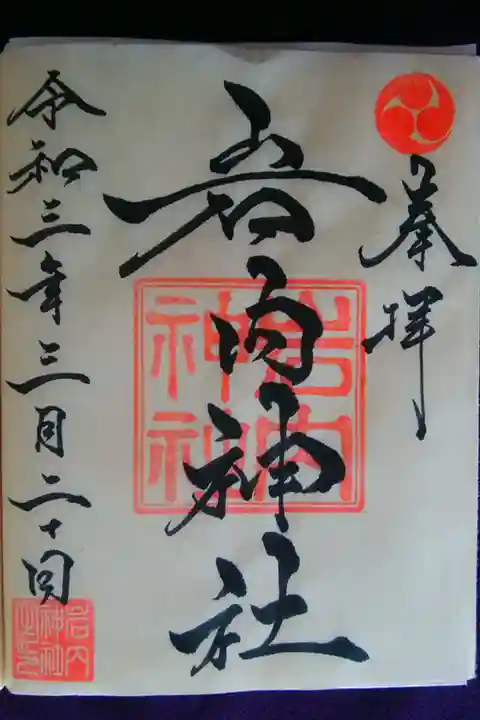 奉拝
岩内神社
岩内
神社
令和三年三月二十日
岩内
神社
之印